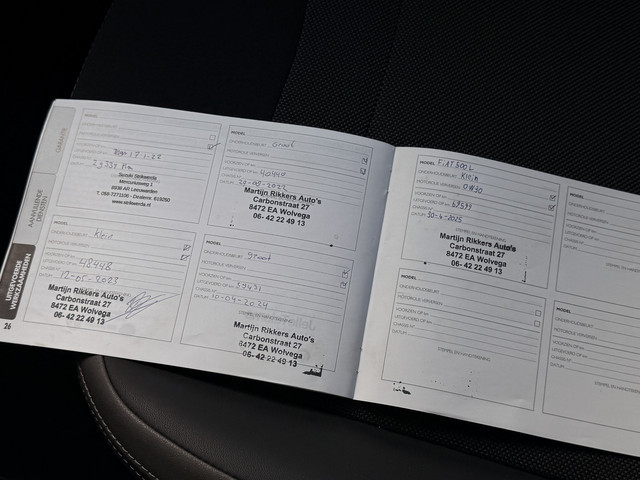 GARANTIE
AANVULLENDE DIENSTEN
UITGEVOERDE WERKZAAMHEDEN
26
MODEL
17-1-22
29339 km
Suzuki Strikwerda
8938 AR Leeuwarden
www.strikwerda.nl
MODEL
Groot
ONDERHOUDSBEURT
MOTOROLIE VERVERSEN
VOORZIEN OP km
UITGEVOERD OP km
CHASSIS N°
DATUM
Martijn Rikkers Auto's
Carbonstraat 27
8472 EA Wolvega
06- 42 22 49 13
MODEL
Klein
ONDERHOUDSBEURT
MOTOROLIE VERVERSEN
VOORZIEN OP km
UITGEVOERD OP km 48448
CHASSIS N°
DATUM 12-05-2023
Martijn Rikkers Auto's
Carbonstraat 27
8472 EA Wolvega
06- 42 22 49 13
MODEL
groot
ONDERHOUDSBEURT
MOTOROLIE VERVERSEN
VOORZIEN OP km
UITGEVOERD OP km
CHASSIS N°
DATUM 10-04-2024
Martijn Rikkers Auto's
Carbonstraat 27
8472 EA Wolvega
06- 42 22 49 13
MODEL FIAT 500L
ONDERHOUDSBEURT Klein
MOTOROLIE VERVERSEN 0W30
VOORZIEN OP km
UITGEVOERD OP km 69599
CHASSIS N°
DATUM 30-4-2025
STEMPEL EN HANDTEKENING
Martijn Rikkers Auto's
Carbonstraat 27
8472 EA Wolvega
06- 42 22 49 13
MODEL
ONDERHOUDSBEURT
MOTOROLIE VERVERSEN
VOORZIEN OP km
UITGEVOERD OP km
CHASSIS N°
DATUM
STEMPEL EN HANDTEKENING
MODEL
ONDERHOUDSBEURT
MOTOROLIE VERVERSEN
VOORZIEN OP km
UITGEVOERD OP km
CHASSIS N°
DATUM
MODEL
ONDERHOUDSBEURT
MOTOROLIE VERVERSEN
VOORZIEN OP km
UITGEVOERD OP km
CHASSIS N°
DATUM
STEMPEL EN HANDTEKENING